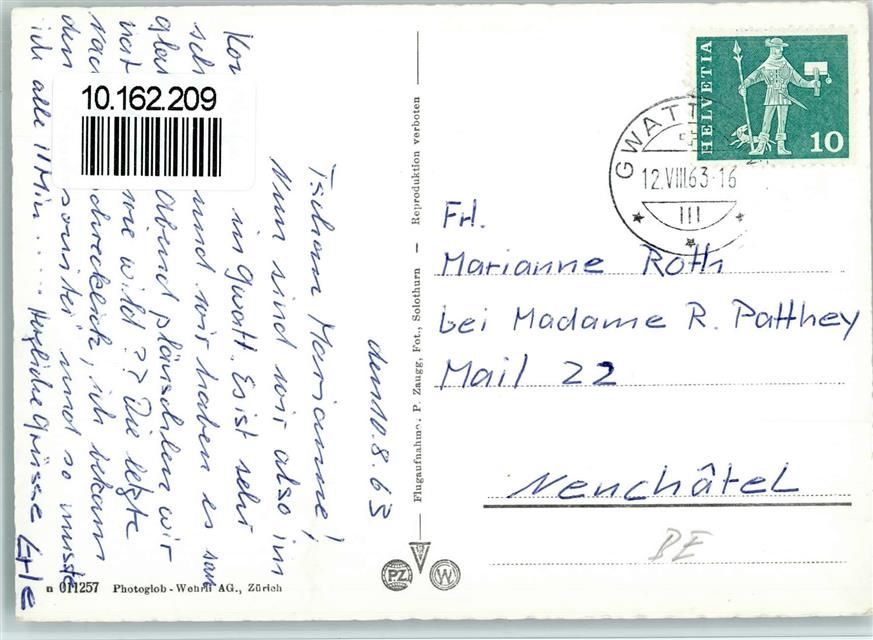 den 10.8.63
Tschau Marianne!
Nun sind wir also im
in Gwatt. Es ist sehr
und wir haben es
Abend plauschlen wir
wie wild?? Die letzte
schrecklich, ich bekam
und so musste
ich alle 11 Min..... Herzliche Grüsse Erle
10.162.209
Flugaufnahme P. Zaugg, Fot., Solothurn – Reproduktion verboten
n 011257 Photoglob-Wehrli AG., Zürich
PZ
W
HELVETIA
10
GWATT
12.VIII.63-16
III
Frl.
Marianne Roth
bei Madame R. Patthey
Mail 22
Neuchâtel
BE